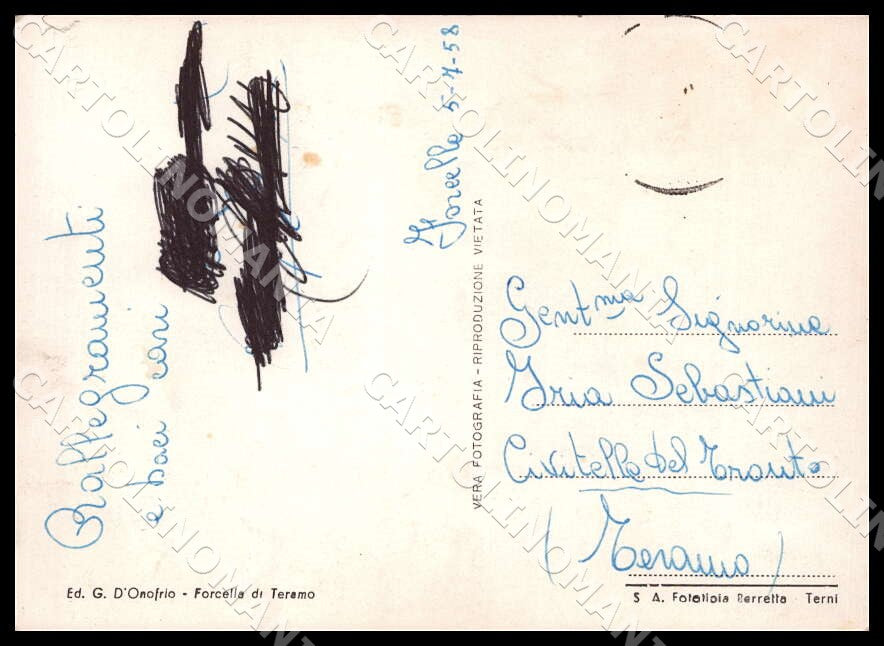 Rallegramenti
e baci cari
Forcella 5-7-58
VERA FOTOGRAFIA - RIPRODUZIONE VIETATA
Gent.ma Signorina
Iria Sebastiani
Civitella del Tronto
(Teramo)
Ed. G. D'Onofrio - Forcella di Teramo
S. A. Fototipia Berretta - Terni
CARTOLINOMANIA